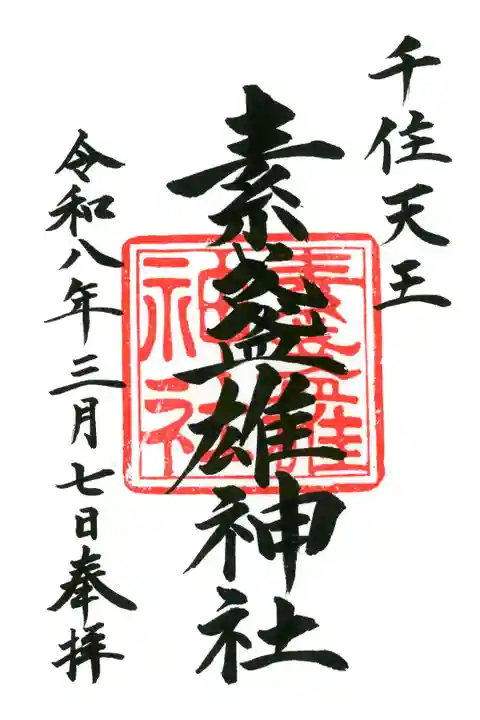 千住天王
素盞雄神社
令和八年三月七日奉拝
素盞雄
神社